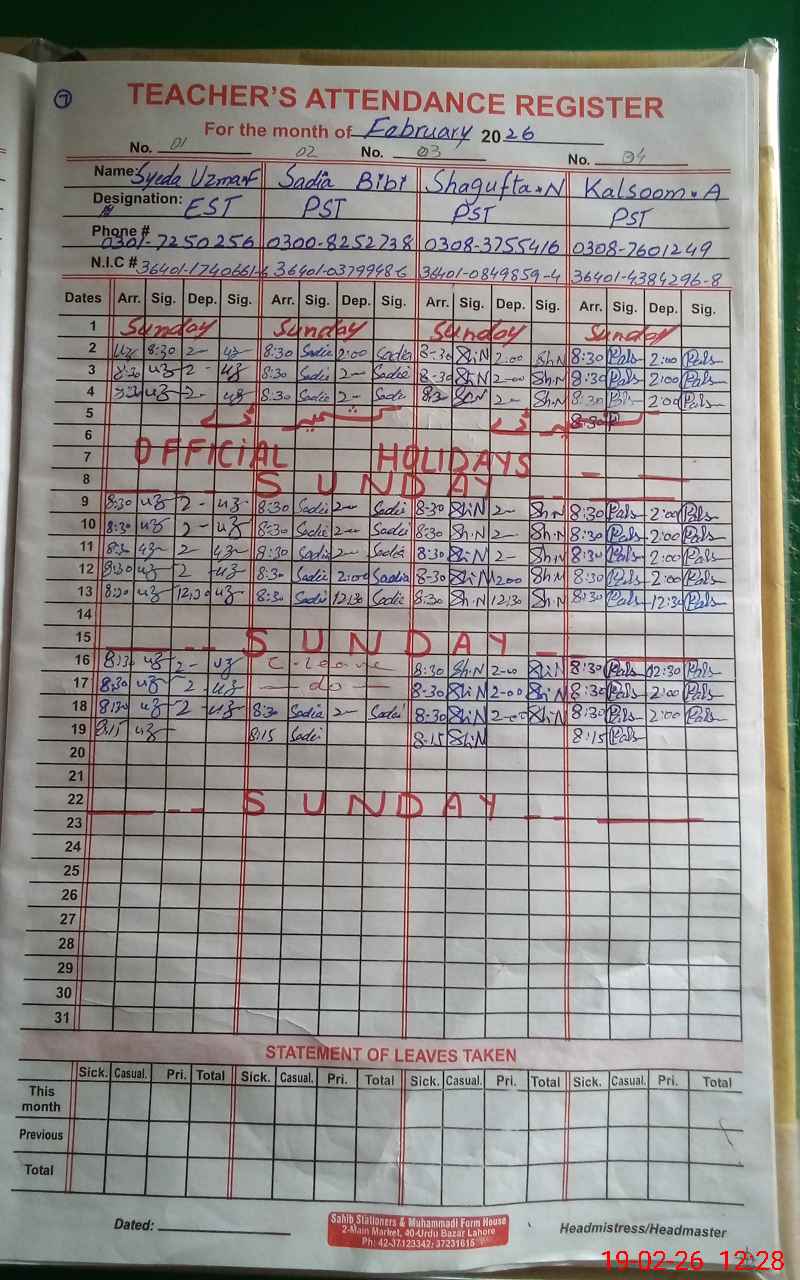 7
TEACHER'S ATTENDANCE REGISTER
For the month of February 2026
No. 01 02 No. 03 No. 04
Name: Syeda Uzma.F Sadia Bibi Shagufta.N Kalsoom.A
Designation: EST PST PST PST
Phone # 0301-7250256 0300-8252738 0308-3755416 0308-7601249
N.I.C # 36401-1740661-6 36401-0379948-6 36401-0849859-4 36401-4384296-8
Dates Arr. Sig. Dep. Sig. Arr. Sig. Dep. Sig. Arr. Sig. Dep. Sig. Arr. Sig. Dep. Sig.
1 Sunday Sunday Sunday Sunday
2 uz 8:30 2- uz 8:30 Sadia 2:00 Sadia 8-30 Sh.N 2:00 Sh.N 8:30 2:00
3 8:30 uz 2- uz 8:30 Sadia 2- Sadia 8-30 Sh.N 2-00 Sh.N 8:30 2:00
4 uz 2- uz 8:30 Sadia 2- Sadia Sh.N 2- Sh.N 8:30 2:00
5 کشمیر ڈے 8:30
6
7 OFFICIAL HOLIDAYS
8 SUNDAY
9 8:30 uz 2- uz 8:30 Sadia 2- Sadia 8-30 Sh.N 2- Sh.N 8:30 2:00
10 8:30 uz 2- uz 8:30 Sadia 2- Sadia 8:30 Sh.N 2- Sh.N 8:30 2:00
11 8:30 uz 2- uz 8:30 Sadia 2- Sadia 8:30 Sh.N 2- Sh.N 8:30 2:00
12 8:30 uz 2 uz 8:30 Sadia 2:00 Sadia 8-30 Sh.N 2:00 Sh.N 8:30 2:00
13 8:30 uz 12:30 uz 8:30 Sadia 12:30 Sadia 8:30 Sh.N 12:30 Sh.N 8:30 12:30
14
15 SUNDAY
16 8:30 uz 2- uz C-leave 8:30 Sh.N 2-00 Sh.N 8:30 12:30
17 8:30 uz 2 uz -do- 8-30 Sh.N 2-00 Sh.N 8:30 2:00
18 8:30 uz 2 uz 8:30 Sadia 2- Sadia 8-30 Sh.N 2-00 Sh.N 8:30 2:00
19 8:15 uz 8:15 Sadia 8-15 Sh.N 8:15
20
21
22 SUNDAY
23
24
25
26
27
28
29
30
31
STATEMENT OF LEAVES TAKEN
Sick. Casual. Pri. Total Sick. Casual. Pri. Total Sick. Casual. Pri. Total Sick. Casual. Pri. Total
This month
Previous
Total
Dated:
Sahib Stationers & Muhammadi Form House
2-Main Market, 40-Urdu Bazar Lahore
Ph: 42-37123342; 37231615
Headmistress/Headmaster
19-02-26 12:28